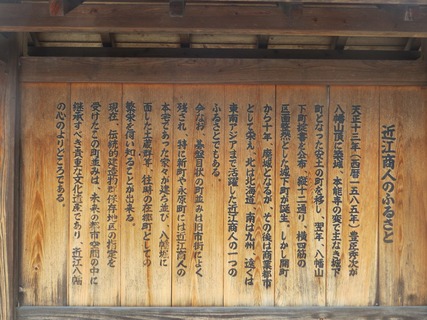 近江商人のふるさと
天正十三年（西暦一五八五年）豊臣秀次が
八幡山頂に築城 本能寺の変で主なき城下
町となった安土の町を移し、翌年、八幡山
下町掟書を公布、縦十二通り 横四筋の
区画整然とした城下町が誕生。しかし開町
から十年 廃城となるが、その後は商業都市
として栄え、北は北海道、南は九州、遠くは
東南アジアまで活躍した近江商人の一つの
ふるさとでもある。
今なお、碁盤目状の町並みは旧市街によく
残され、特に新町や永原町には近江商人の
本宅であった家々が建ち並び 八幡堀に
面した土蔵群は 往時の在郷町としての
繁栄を伺い知ることが出来る。
現在、伝統的建造物群保存地区の指定を
受けたこの町並みは、未来の都市空間の中に
継承すべき貴重な文化遺産であり、近江八幡
の心のよりどころである。